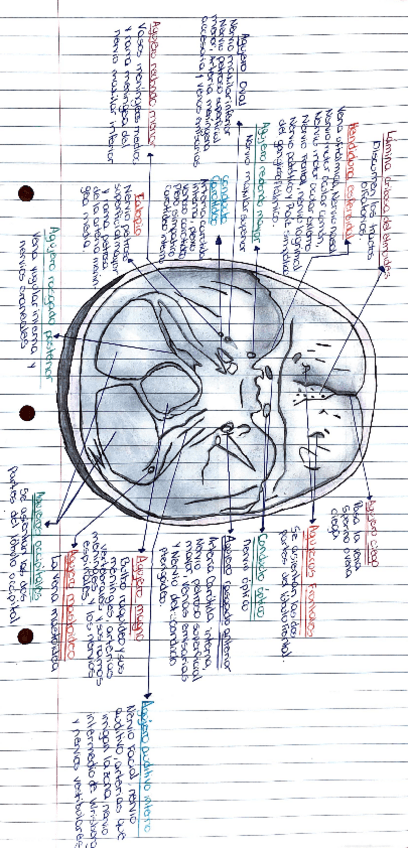 Lámina cribosa del etmoides
Discurren los tractos
olfatorios.
Hendidura esfenoidal
Vena oftálmica, Nervio nasal
Nervio motor ocular común,
Nervio motor ocular externo,
Nervio frontal, nervio lagrimal
Nervio patético y Raíz simpática
del ganglio oftálmico.
Agujero redondo mayor
Nervio maxilar superior
Agujero Oval
Nervio maxilar inferior
Nervio petroso superficial
menor, arteria meníngea
accesoria y venas emisarias
Conducto
Carotídeo
Arteria carótida
interna, plexo
venoso carotídeo
Plexo simpático
carotídeo interno
Agujero redondo menor
Vasos meníngeos medios
y rama meníngea del
nervio maxilar inferior
Nervio petroso
superficial mayor
y rama petrosa
de la arteria menín-
gea media.
Agujero rasgado posterior
Vena yugular interna y
nervios craneales
Agujero ciego
Pasa la vena
ciega.
Agujeros Frontales
Se asientan las dos
partes del lóbulo frontal.
Conducto óptico
Nervio óptico
Agujero rasgado anterior
Arteria Carótida interna,
Nervio petroso superficial
mayor, venas emisarias
y Nervio del conducto
pterigoideo.
Agujero magno
Bulbo raquídeo y sus
meninges, arterias
vertebrales y sus ramas
espinales y los nervios
espinales
Agujero mastoideo
La vena mastoidea
Agujeros occipitales
Se asientan las dos
partes del lóbulo occipital
Agujero auditivo interno
Nervio facial, nervio
auditivo, arterias que
irrigan la zona, nervio
intermedio de Wrisberg
y nervios vestibulares